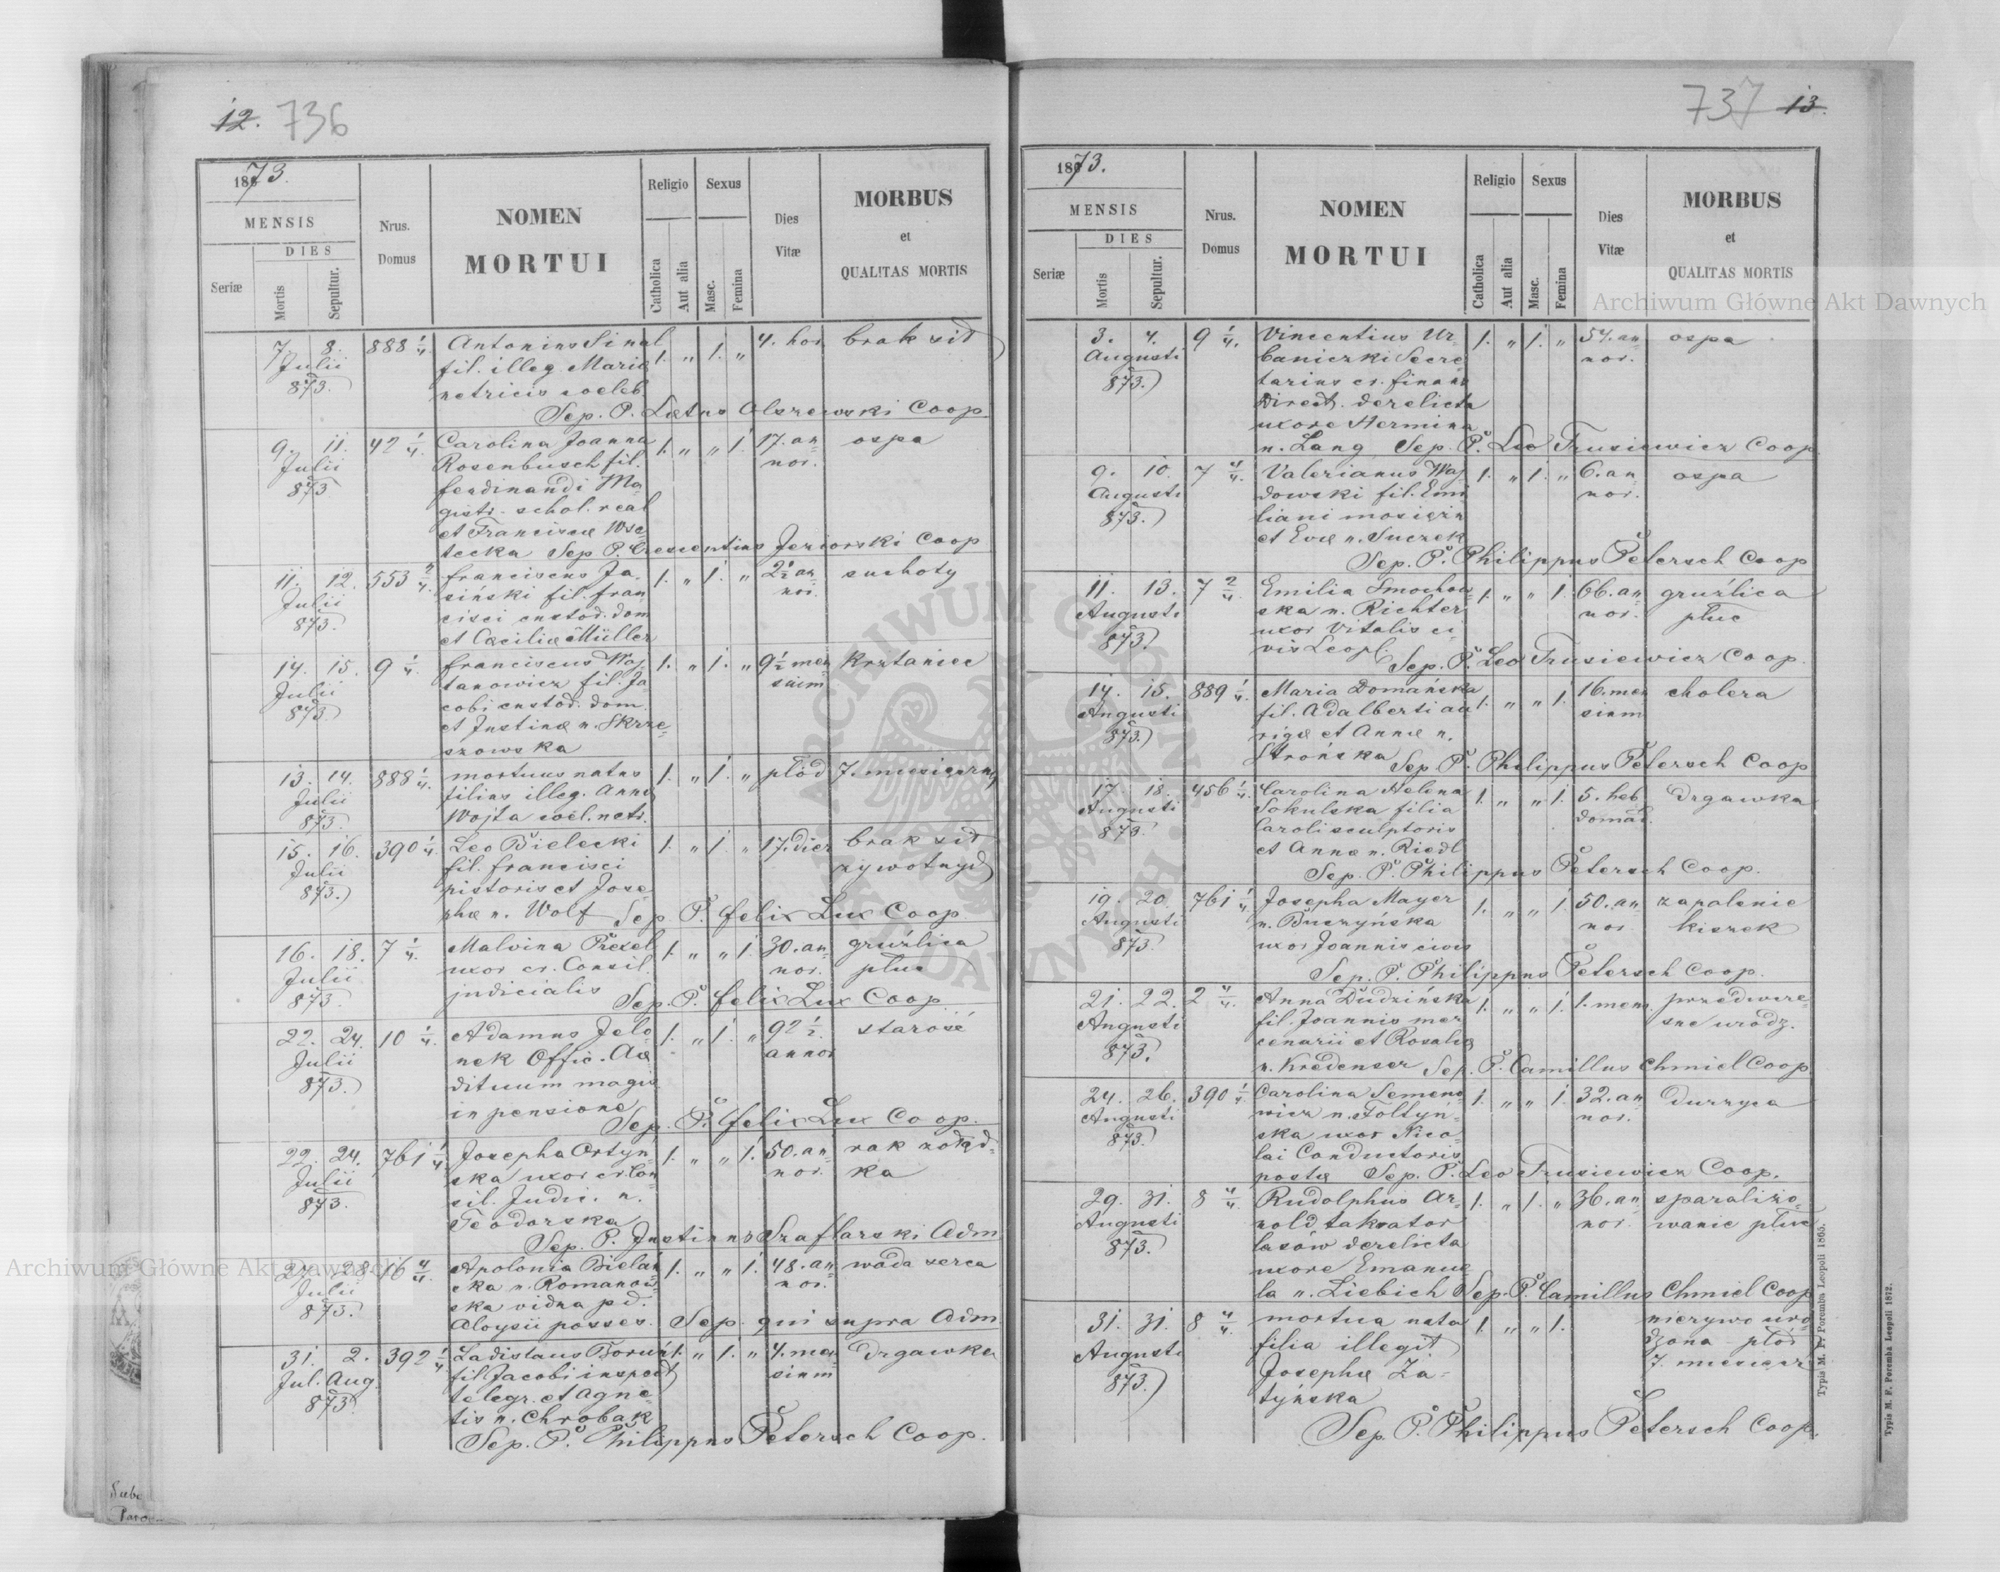 12. 736
1873.
MENSIS
DIES
Seriæ
Mortis
Sepultur.
Nrus.
Domus
NOMEN
MORTUI
Religio
Catholica
Aut alia
Sexus
Masc.
Femina
Dies
Vitæ
MORBUS
et
QUALITAS MORTIS
7. 8. 888 1/4 Antonius Sinal 1. „ 1. „ 4. hor. brak sił
Julii fil. illeg. Mariæ
873.
Sep. P. Lætus Olszewski Coop
9. 11. 42 1/4 Carolina Joanna 1. „ „ 1. 17. an ospa
Julii Rosenbusch fil. nor.
873 ferdinandi Ma
gistr. schol. real
et Franciscæ Wse
tecka Sep P. Crescentius Jeziorski Coop
11. 12. 553 2/4 franciscus Ja- 1. „ 1. „ 2 1/2 an suchoty
Julii siński fil. fran nor.
873. cisci custod. dom
et Cæciliæ Müller
14. 15. 9 1/4 franciscus Woj 1. „ 1. „ 9 1/2 men krztusiec
Julii tanowicz fil. Ja sium
873. cobi custod. dom.
et Justinæ n. Skrze
szowska
13. 14. 888 1/4 mortuus natus 1. „ 1. „ płód 7. miesięczny
Julii filius illeg. Annæ
873. Wojta
15. 16. 390 1/4 Leo Bielecki 1. „ 1. „ 17. dier brak sił
Julii fil. francisci żywotnych
873. pistoris et Jose
phæ n. Wolf Sep. P. felix Lux Coop
16. 18. 7 1/4 Malvina Prexel 1. „ „ 1. 30. an gruźlica
Julii uxor cr. Consil. nor. płuc
873. judicialis Sep. P. felix Lux Coop
22. 24. 10 1/4 Adamus Jelo 1. „ 1. „ 92 1/2 starość
Julii nek Offic. annor
873. dituum magis
in pensione
Sep. P. felix Lux Coop.
22. 24. 761 1/4 Josepha Ortyń 1. „ „ 1. 50. an rak żołąd-
Julii ska uxor cr Con nor. ka
873. sil. Judic. n.
Teodorska
Sep. P. Justinus Szaflarski Adm
27. 28 16 4/4 Apolonia Bielań 1. „ „ 1. 48. an wada serca
Julii ska n. Romanow nor.
873. ska vidua pd.
Aloysii posses. Sep. qui supra Adm
31. 2. 392 1/4 Ladislaus Boruń 1. „ 1. „ 4. men drgawka
Jul. Aug. fil. Jacobi inspect sium
873 telegr. et Agne
tis n. Chrobak
Sep. P. Philippus Petersch Coop.
737 13.
1873.
MENSIS
DIES
Seriæ
Mortis
Sepultur.
Nrus.
Domus
NOMEN
MORTUI
Religio
Catholica
Aut alia
Sexus
Masc.
Femina
Dies
Vitæ
MORBUS
et
QUALITAS MORTIS
3. 4. 9 1/4. Vincentius Ur- 1. „ 1. „ 57. an ospa
Augusti baniczki Secre nor.
873. tarius cr. finans
Direct. derelicta
uxore Hermina
n. Lang Sep. P. Leo Trusiewicz Coop
9. 10. 7 4/4. Valerianus Waj 1. „ 1. „ 6. an ospa
Augusti dowski fil. Emi nor.
873. liani mosiężn
et Evæ n. Suczek
Sep. P. Philippus Petersch Coop
11. 13. 7 2/4 Emilia Smochow 1. „ „ 1. 66. an gruźlica
Augusti ska n. Richter nor. płuc
873. uxor Vitalis ci
vis Leopl. Sep. P. Leo Trusiewicz Coop.
14. 15. 889 1/4. Maria Domańska 1. „ „ 1. 16. men cholera
Augusti fil. Adalberti au sium
873. rigæ et Annæ n.
Strońska Sep. P. Philippus Petersch Coop
17. 18. 456 1/4. Carolina Helena 1. „ „ 1. 5. heb drgawka
Augusti Sokulska filia domad.
873. Caroli sculptoris
et Annæ n. Riedl
Sep. P. Philippus Petersch Coop.
19. 20. 761 1/4 Josepha Mayer 1. „ „ 1. 50. an zapalenie
Augusti n. Buczyńska nor. kiszek
873. uxor Joannis civis
Sep. P. Philippus Petersch Coop.
21. 22. 2 4/4. Anna Dudzińska 1. „ „ 1. 1. mens przedwcze-
Augusti fil. Joannis mer sne urodz.
873. cenarii et Rosaliæ
n. Kredenser Sep. P. Camillus Chmiel Coop
24. 26. 390 1/4 Carolina Semeno 1. „ „ 1. 32. an durzyca
Augusti wicz n. Foltyn- nor.
873. ska uxor Nico-
lai Conductoris
postæ Sep. P. Leo Trusiewicz Coop.
29. 31. 8 4/4 Rudolphus Ar- 1. „ 1. „ 36. an sparaliżo-
Augusti nold taksator nor. wanie płuc
873. lasów derelicta
uxore Emanue
la n. Liebich Sep. P. Camillus Chmiel Coop
31. 31. 8 4/4. mortua nata 1. „ „ 1. nieżywo uro
Augusti filia illegit dzona płód
873. Josephæ Za- 7. miesięcz
tyńska
Sep. P. Philippus Petersch Coop.
Typis M. F. Poremba Leopoli 1865.
Typis M. F. Poremba Leopoli 1872.
Archiwum Główne Akt Dawnych
Archiwum Główne Akt Dawnych
ARCHIWUM GŁÓWNE AKT DAWNYCH